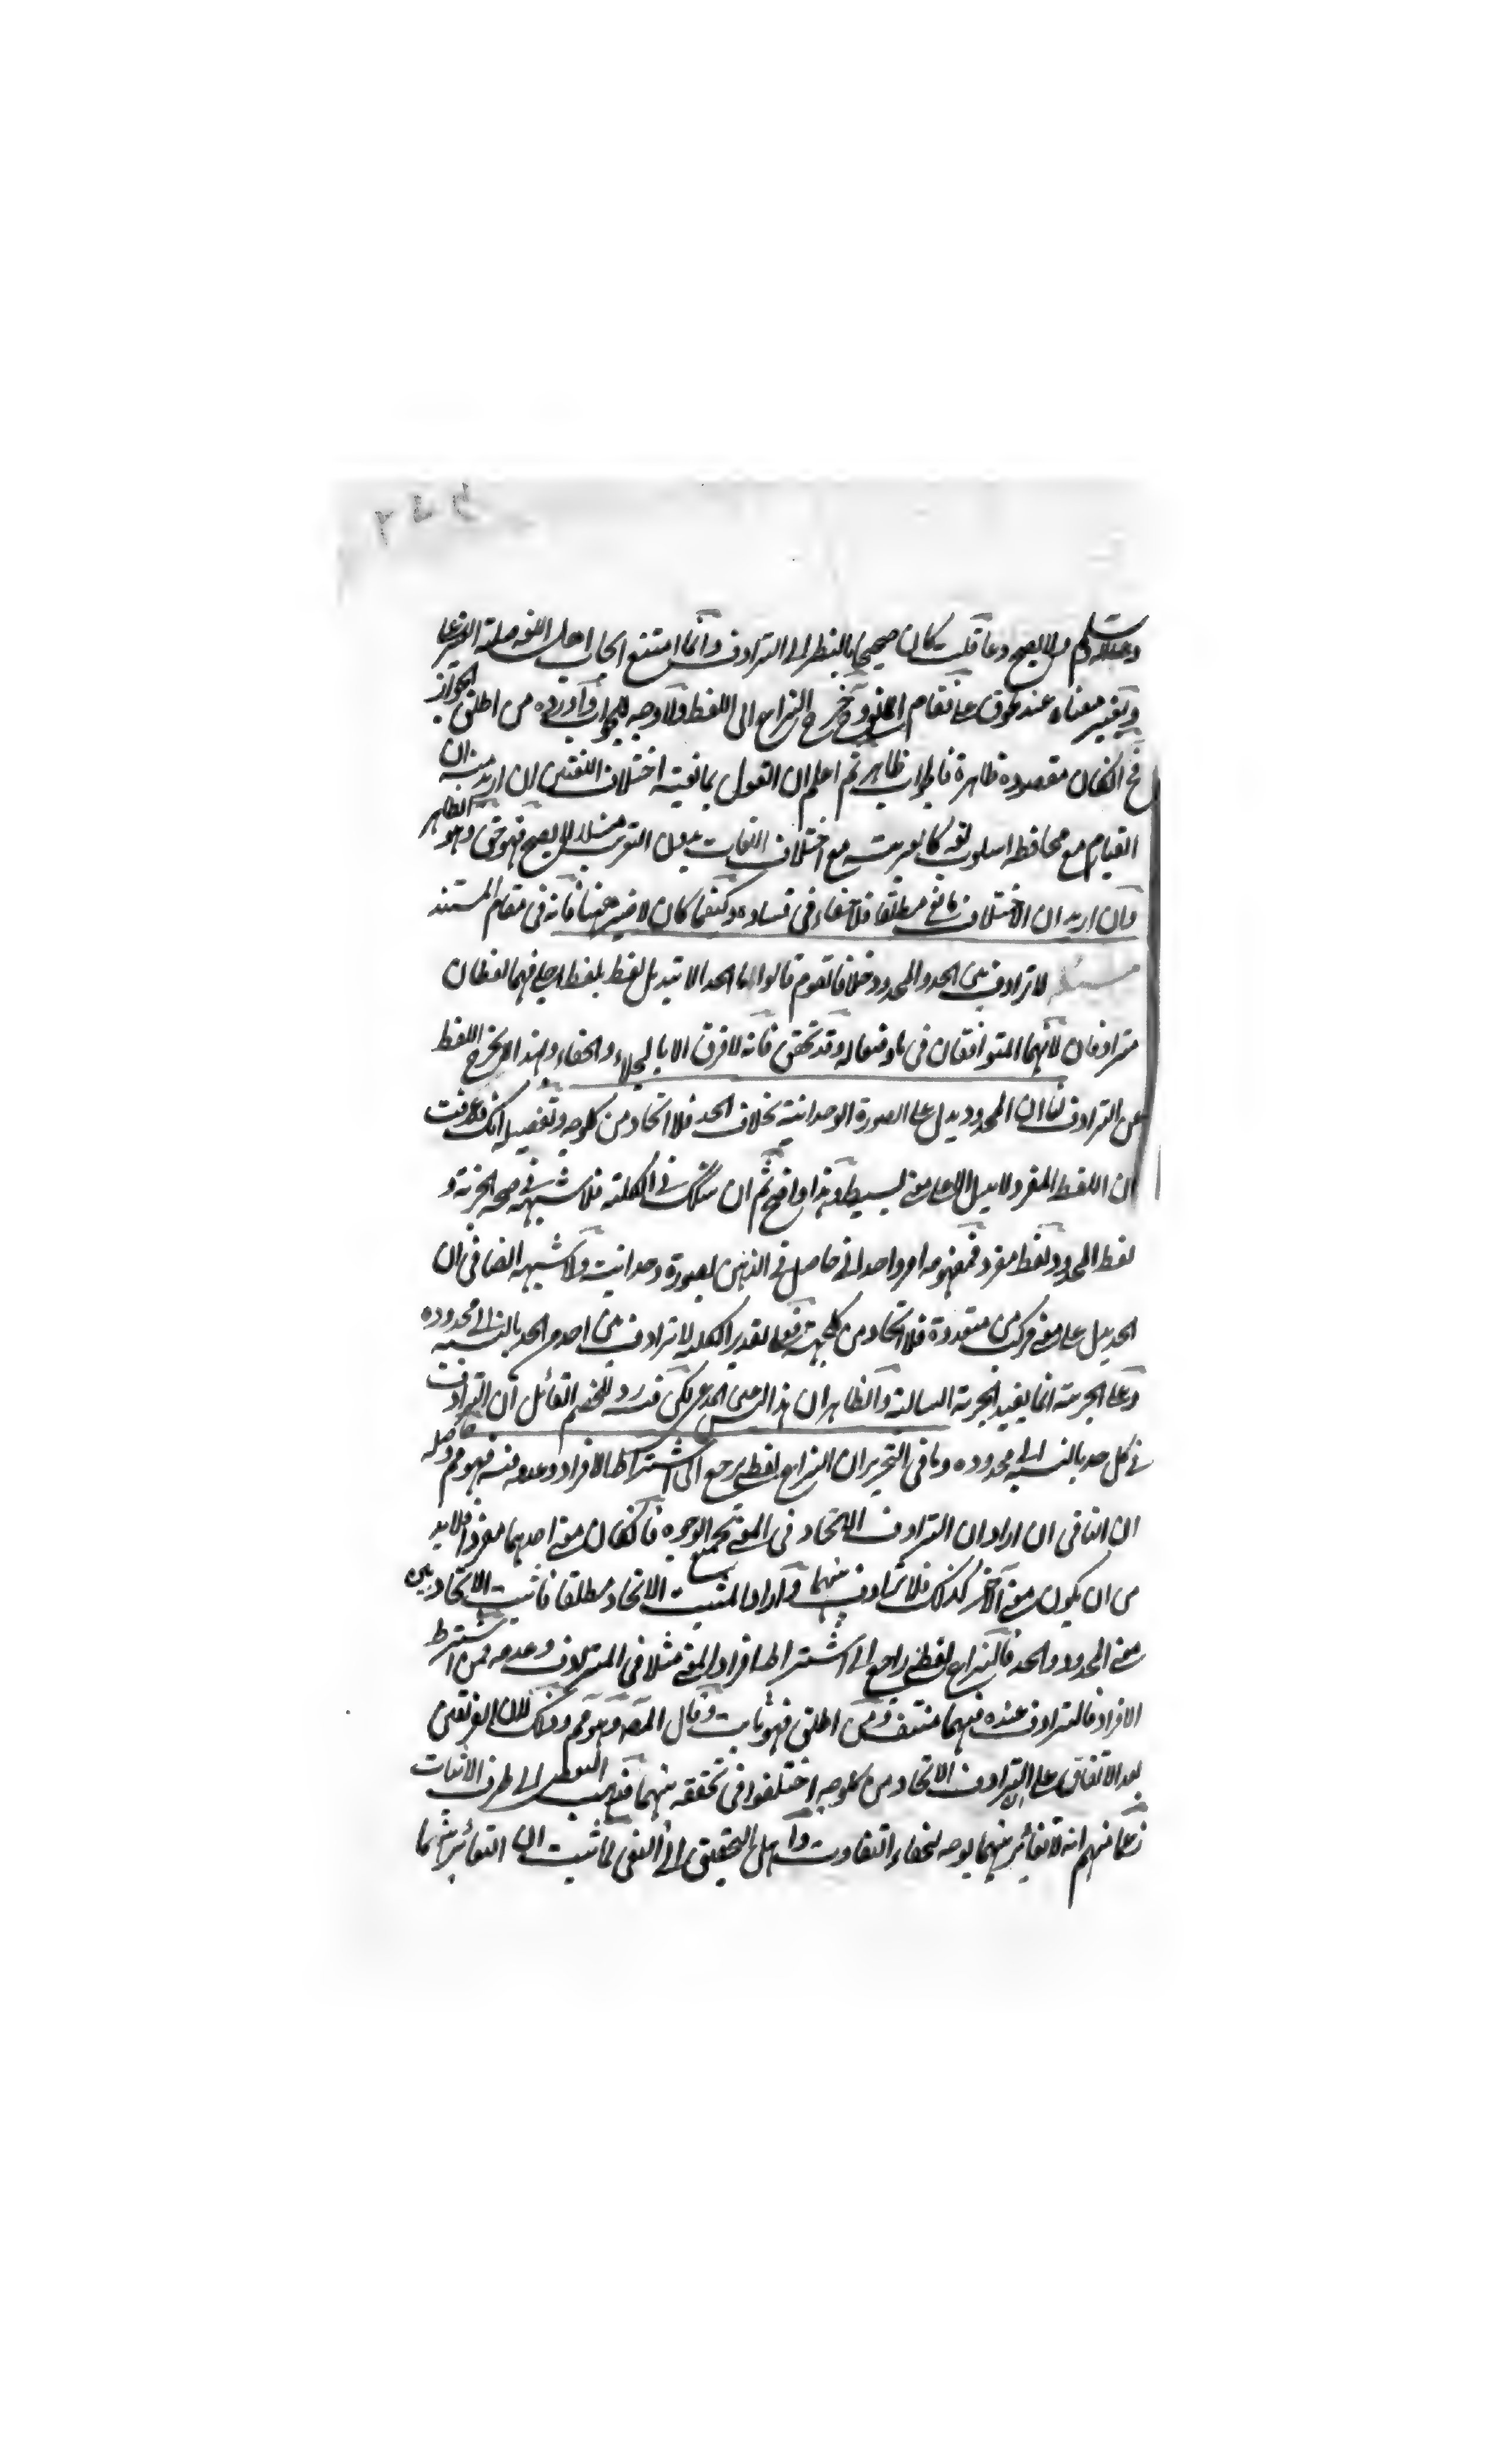 وسلم ولا يصح دعا قلت كان صحيحا بالنظر الى الترادف وانما امتنع ايجاب اهل اللغة صلة
وبتغير معناه عند ما في مقام النزاع الى اللفظ ولا وجه للجواب وأورده من اطلق الجواز
فح الكان مقصوده ظاهرة فالجواب ظاهر ثم اعلم ان القول بمانعية اختلاف اللغتين ان اريد منه ان
القيام مع محافظة اسلوب لغة كالعربية مع اختلاف اللغات مثلا لا يصح فهو حق وهو الظاهر
وان اريد ان الاختلاف مانع مطلقا فلا خفاء في فساده وكيفما كان لا ضير ههنا فانه في مقام المستند
مسئلة لا ترادف بين الحد والمحدود خلافا لقوم قالوا ما الحد الا تبديل لفظ بلفظ اجلى فهما لفظان
مترادفان لانهما المتوافقان في ما وضعا له وقد تحقق فانه لا فرق الا بالجلاء والخفاء وبهذا لا يخرج اللفظ
عن الترادف لنا ان المحدود يدل على الصورة الوحدانية بخلاف الحد فلا اتحاد من كل وجه وتفصيله انك قد عرفت
ان اللفظ المفرد لا يدل الا على معنى بسيط وهذا واضح ثم ان شك في الكلية فلا شبهة في صحة الجزئية و
لفظ المحدود لفظ مفرد فمفهومه امر واحداني حاصل في الذهن بصورة وحدانية ولا شبهة ايضا في ان
الحد يدل على معنى مركب من متعددة فلا اتحاد من كل جهة فعلى تقدير الكلية لا ترادف بين احد من الحد بالنسبة الى محدوده
وعلى الجزئية انما يفيد الجزئية السالبة والظاهر ان هذا ليس المدعى لكن فيه رد للخصم القائل ان الترادف
في كل حد بالنسبة الى محدوده وما في التحرير ان النزاع لفظي يرجع الى اشتراط الافراد وعدمه فيه فهو مم وحاصله
ان النافي ان اراد ان الترادف الاتحاد في المعنى بجميع الوجوه فان كان معنى احدهما مفردا فلا بد
من ان يكون معنى الآخر كذلك فلا ترادف بينهما واراد المثبت الاتحاد مطلقا فاثبت الاتحاد بين
معنى المحدود والحد فالنزاع لفظي راجع الى اشتراط افراد المعنى مثلا في المترادف وعدمه فمن اشترط
الافراد فالترادف عنده فيهما منتف ومن اطلق فهو ثابت وقال المص وهو مم وذلك لان الفريقين
بعد الاتفاق على الترادف الاتحاد من كل وجه اختلفوا في تحققه بينهما فذهب البعض الى طرف الاثبات
زعما منهم انه لا تغاير بينهما بوجه لخفاء التفاوت واهل التحقيق الى النفي لما ثبت ان التغاير بينهما